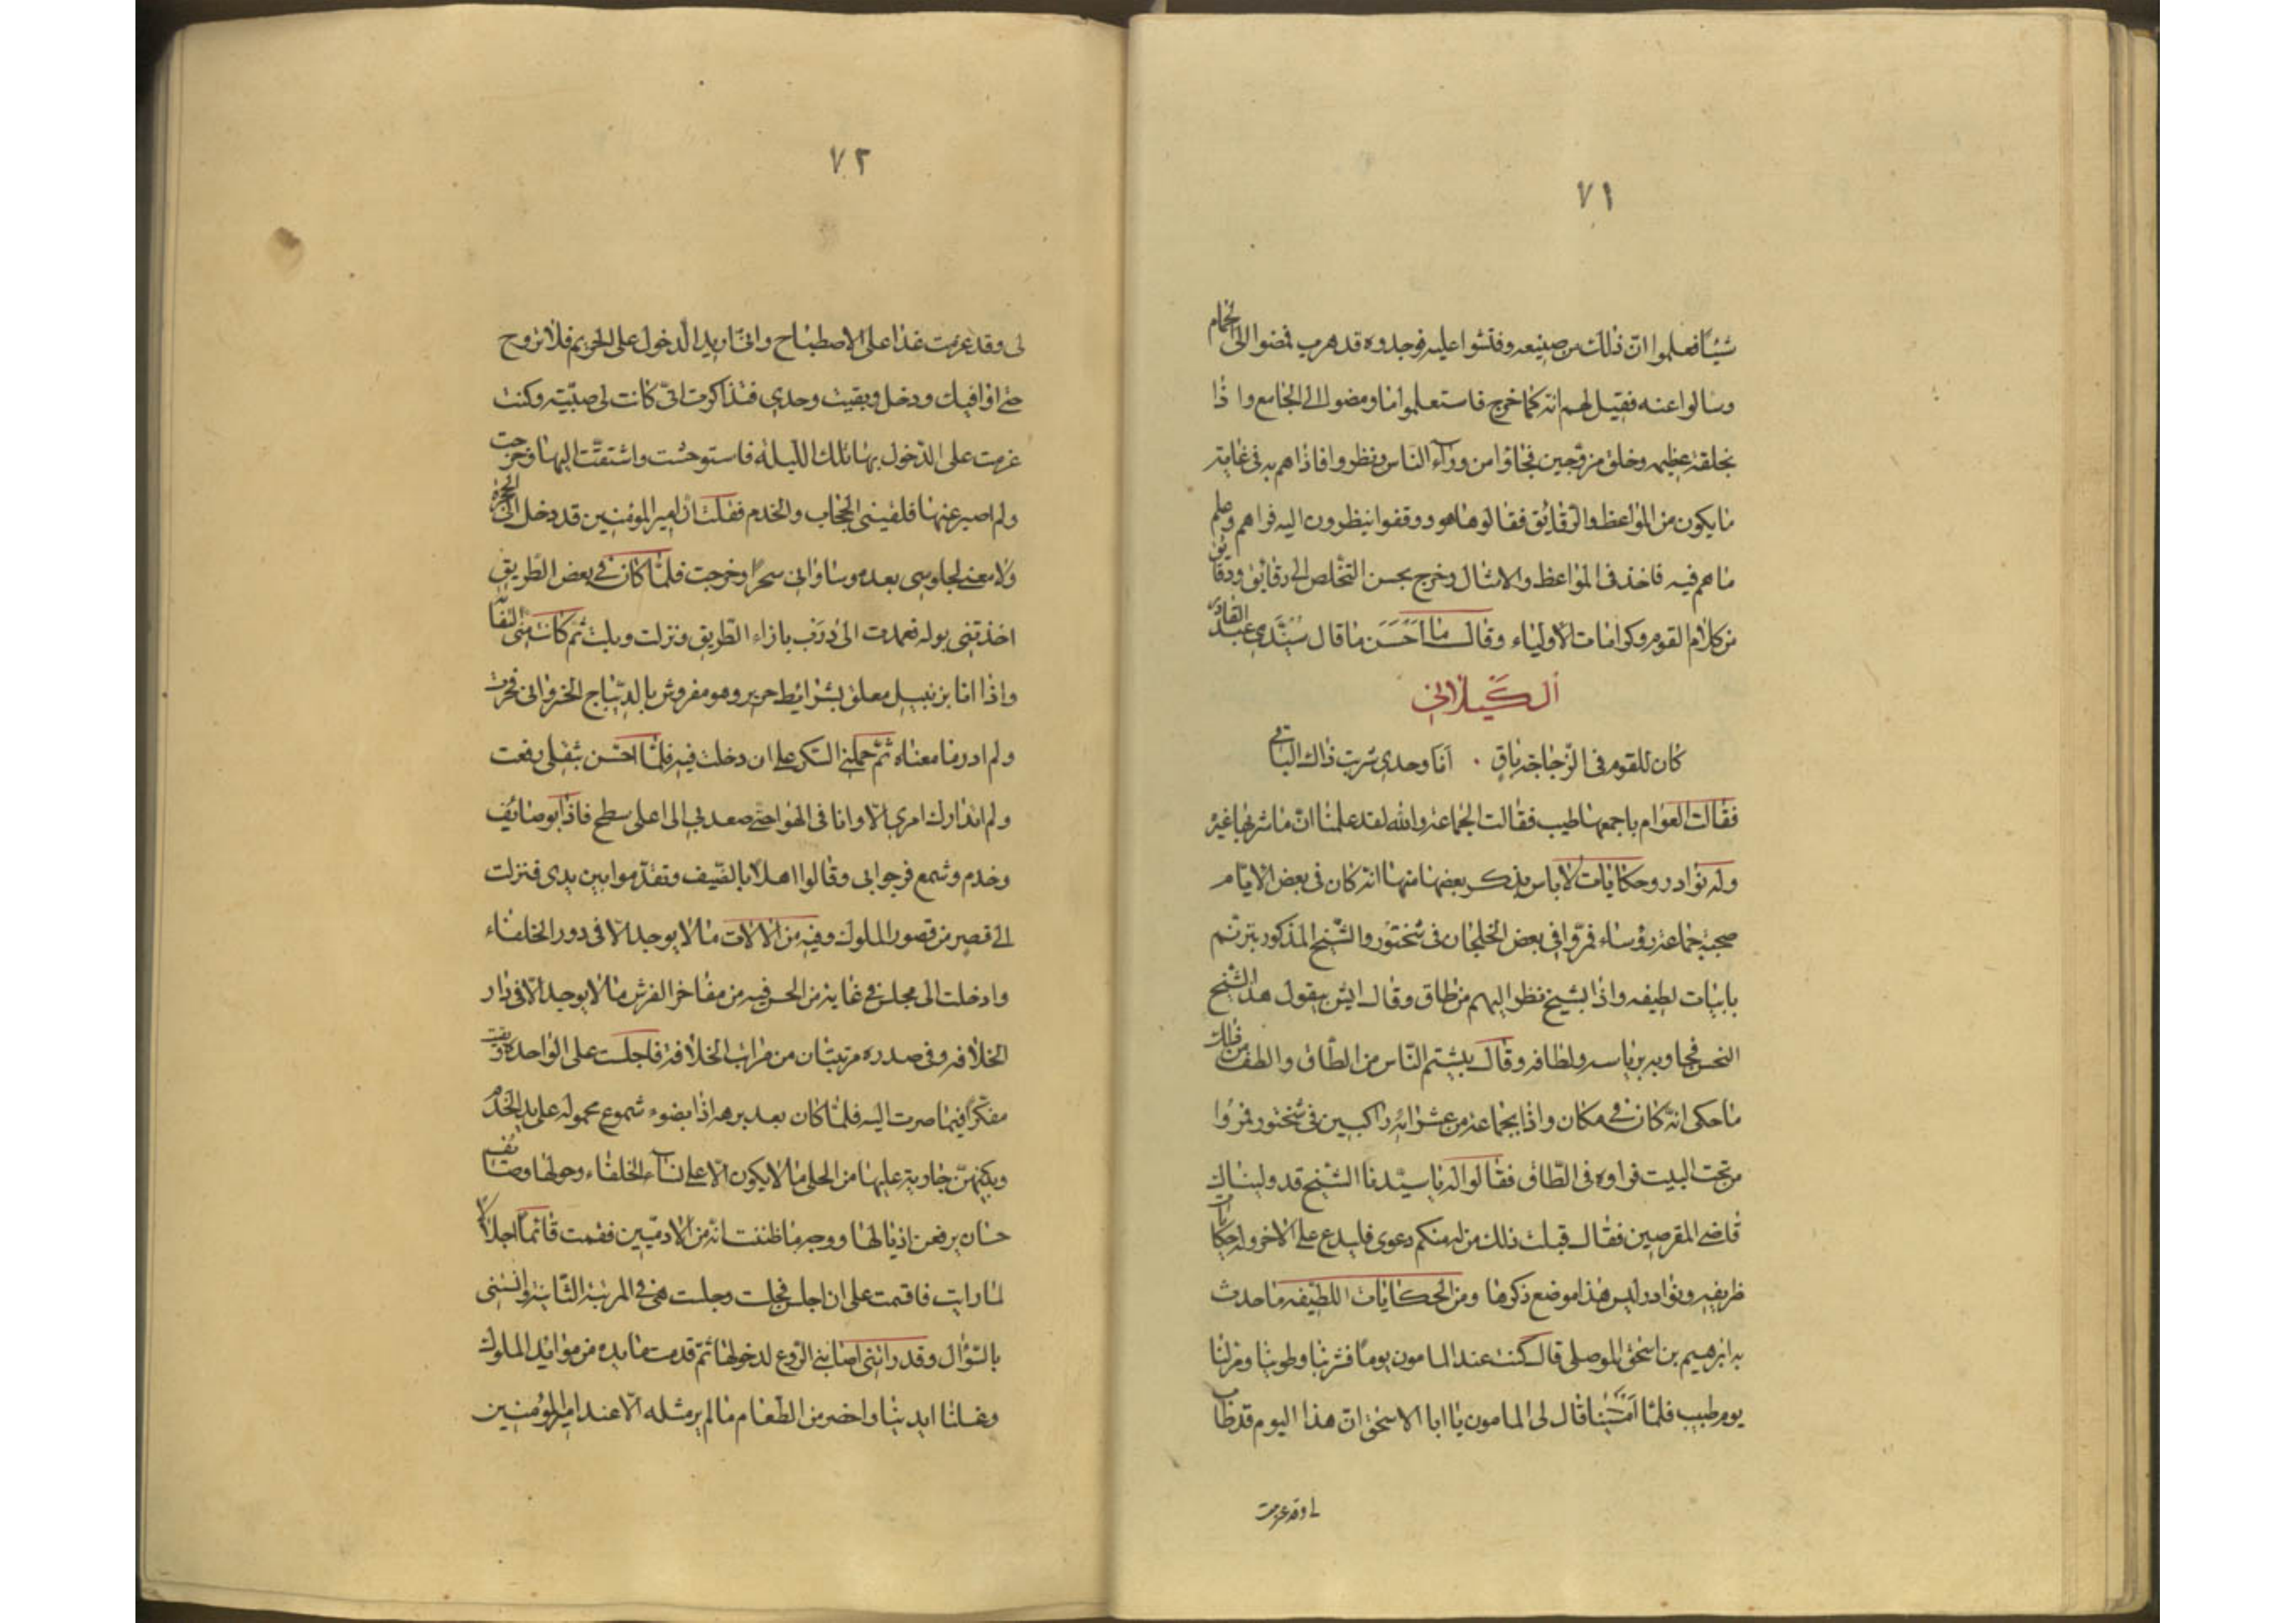 ٧١
شيئا فعلموا انّ ذلك من صنيعه وفتشوا عليه فوجدوه قد هرب فمضوا الى الحمام
وسالوا عنه فقيل لهم انه كما خرج فاستعلموا منا ومضوا الى الجامع واذا
بحلقة عظيمه وخلق مزدحمين فجاؤا من ورآء الناس ونظروا فاذا هم به فى غاية
ما يكون من المواعظ والرقائق فقالوا ها هو ووقفوا ينظرون اليه فراهم وعلم
ما هم فيه فاخذ فى المواعظ والامثال وخرج بحسن التخلص الى رقائق ودقائق
من كلام القوم وكرامات الأولياء وقال ما احسن ما قال سيّدى عبد القادر
الكيلانى
كان للقوم فى الزّجاجة باقٍ . انا وحدى شربت ذاك الباقى
فقالت العوام باجمعها طيب فقالت الجماعة والله لقد علمنا انّ ما شربها غيره
وله نوادر وحكايات لا باس بذكر بعضها منها انه كان فى بعض الايام
صحبة جماعة رؤساء فمرّوا فى بعض الخلجان فى شختور والشيخ المذكور يترنم
بابيات لطيفه واذا بشيخ نظر اليهم من طاق وقال ايش يقول هذا الشيخ
النحس فجاوبه برياسه ولطافه وقال يشتم الناس من الطاق والطف من ذلك
ما حكى انه كان فى مكان واذا بجماعة من عشرائه راكبين فى شختور فمروا
من تحت البيت فراوه فى الطاق فقالوا له يا سيدنا الشيخ قد وليناك
قاضى المقرصين فقال قبلت ذلك من له منكم دعوى فليدع على الاخر وله حكايات
ظريفه ونوادر ليس هذا موضع ذكرها ومن الحكايات اللطيفه ما حدث
به ابرهيم بن اسحق الموصلى قال كنت عند المامون يوما فشربنا وطربنا ومر لنا
يوم طيب فلما امسَينا قال لى المامون يا ابا الاسحق ان هذا اليوم قد طاب
لى وقد عزمت
٧٢
لى وقد عزمت غدا على الاصطباح وانى اريد الدخول على الحريم فلا تروح
حتى اوافيك ودخل وبقيت وحدى فتذاكرت انى كانت لى صبيّة وكنت
عزمت على الدخول بها تلك الليلة فاستوحشت واشتقت اليها وخرجت
ولم اصبر عنها فلقينى الحجاب والخدم فقلت ان امير المومنين قد دخل الى الحجرة
ولا معنى لجلوسى بعده وسا وانى سحرا وخرجت فلما كان فى بعض الطريق
اخذتنى بوله فعمدت الى درب بازاء الطريق ونزلت وبلت ثم كانت منى التفاتة
واذا انا بزنبيل معلق بشرائط حرير وهو مفروش بالديباج الخسروانى فحرت
ولم ادر ما معناه ثم حملنى السكر على ان دخلت فيه فلما احسن بثقلى رفعت
ولم اتدارك امرى الا وانا فى الهوا حتى صعد بى الى اعلى سطح فاذا بوصائف
وخدم وشمع فرحوا بى وقالوا اهلا بالضيف وتقدموا بين يدى فنزلت
الى قصر من قصور الملوك وفيه من الالات ما لا يوجد الا فى دور الخلفاء
وادخلت الى مجلس فى غاية من الحسن فيه من مفاخر الفرش ما لا يوجد الا فى دار
الخلافه وفى صدره مرتبتان من مراتب الخلافة فاجلست على الواحدة وبقيت
مفكرا فيما صرت اليه فلما كان بعد برهه اذا بضوء شموع محموله على يد الخدم
وبينهنّ جارية عليها من الحلى ما لا يكون الا على نسآء الخلفاء وحولها وصائف
حسان يرفعن اذيالها ووجه ما ظننت انه من الادميين فقمت قائما اجلالا
لما رايت فاقسمت على ان اجلس فجلست وجلست هى فى المرتبة الثانية وانستنى
بالسؤال وقد راتنى اصابنى الروع لدخولها ثم قدمت مايده من موايد الملوك
وغسلنا ايدينا واحضر من الطعام ما لم ير مثله الا عند امير المؤمنين